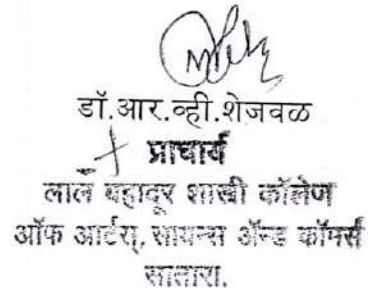 डॉ.आर.व्ही.शेजवळ
प्राचार्य
लाल बहादूर शास्त्री कॉलेज
ऑफ आर्टस्, सायन्स ॲन्ड कॉमर्स
सातारा.